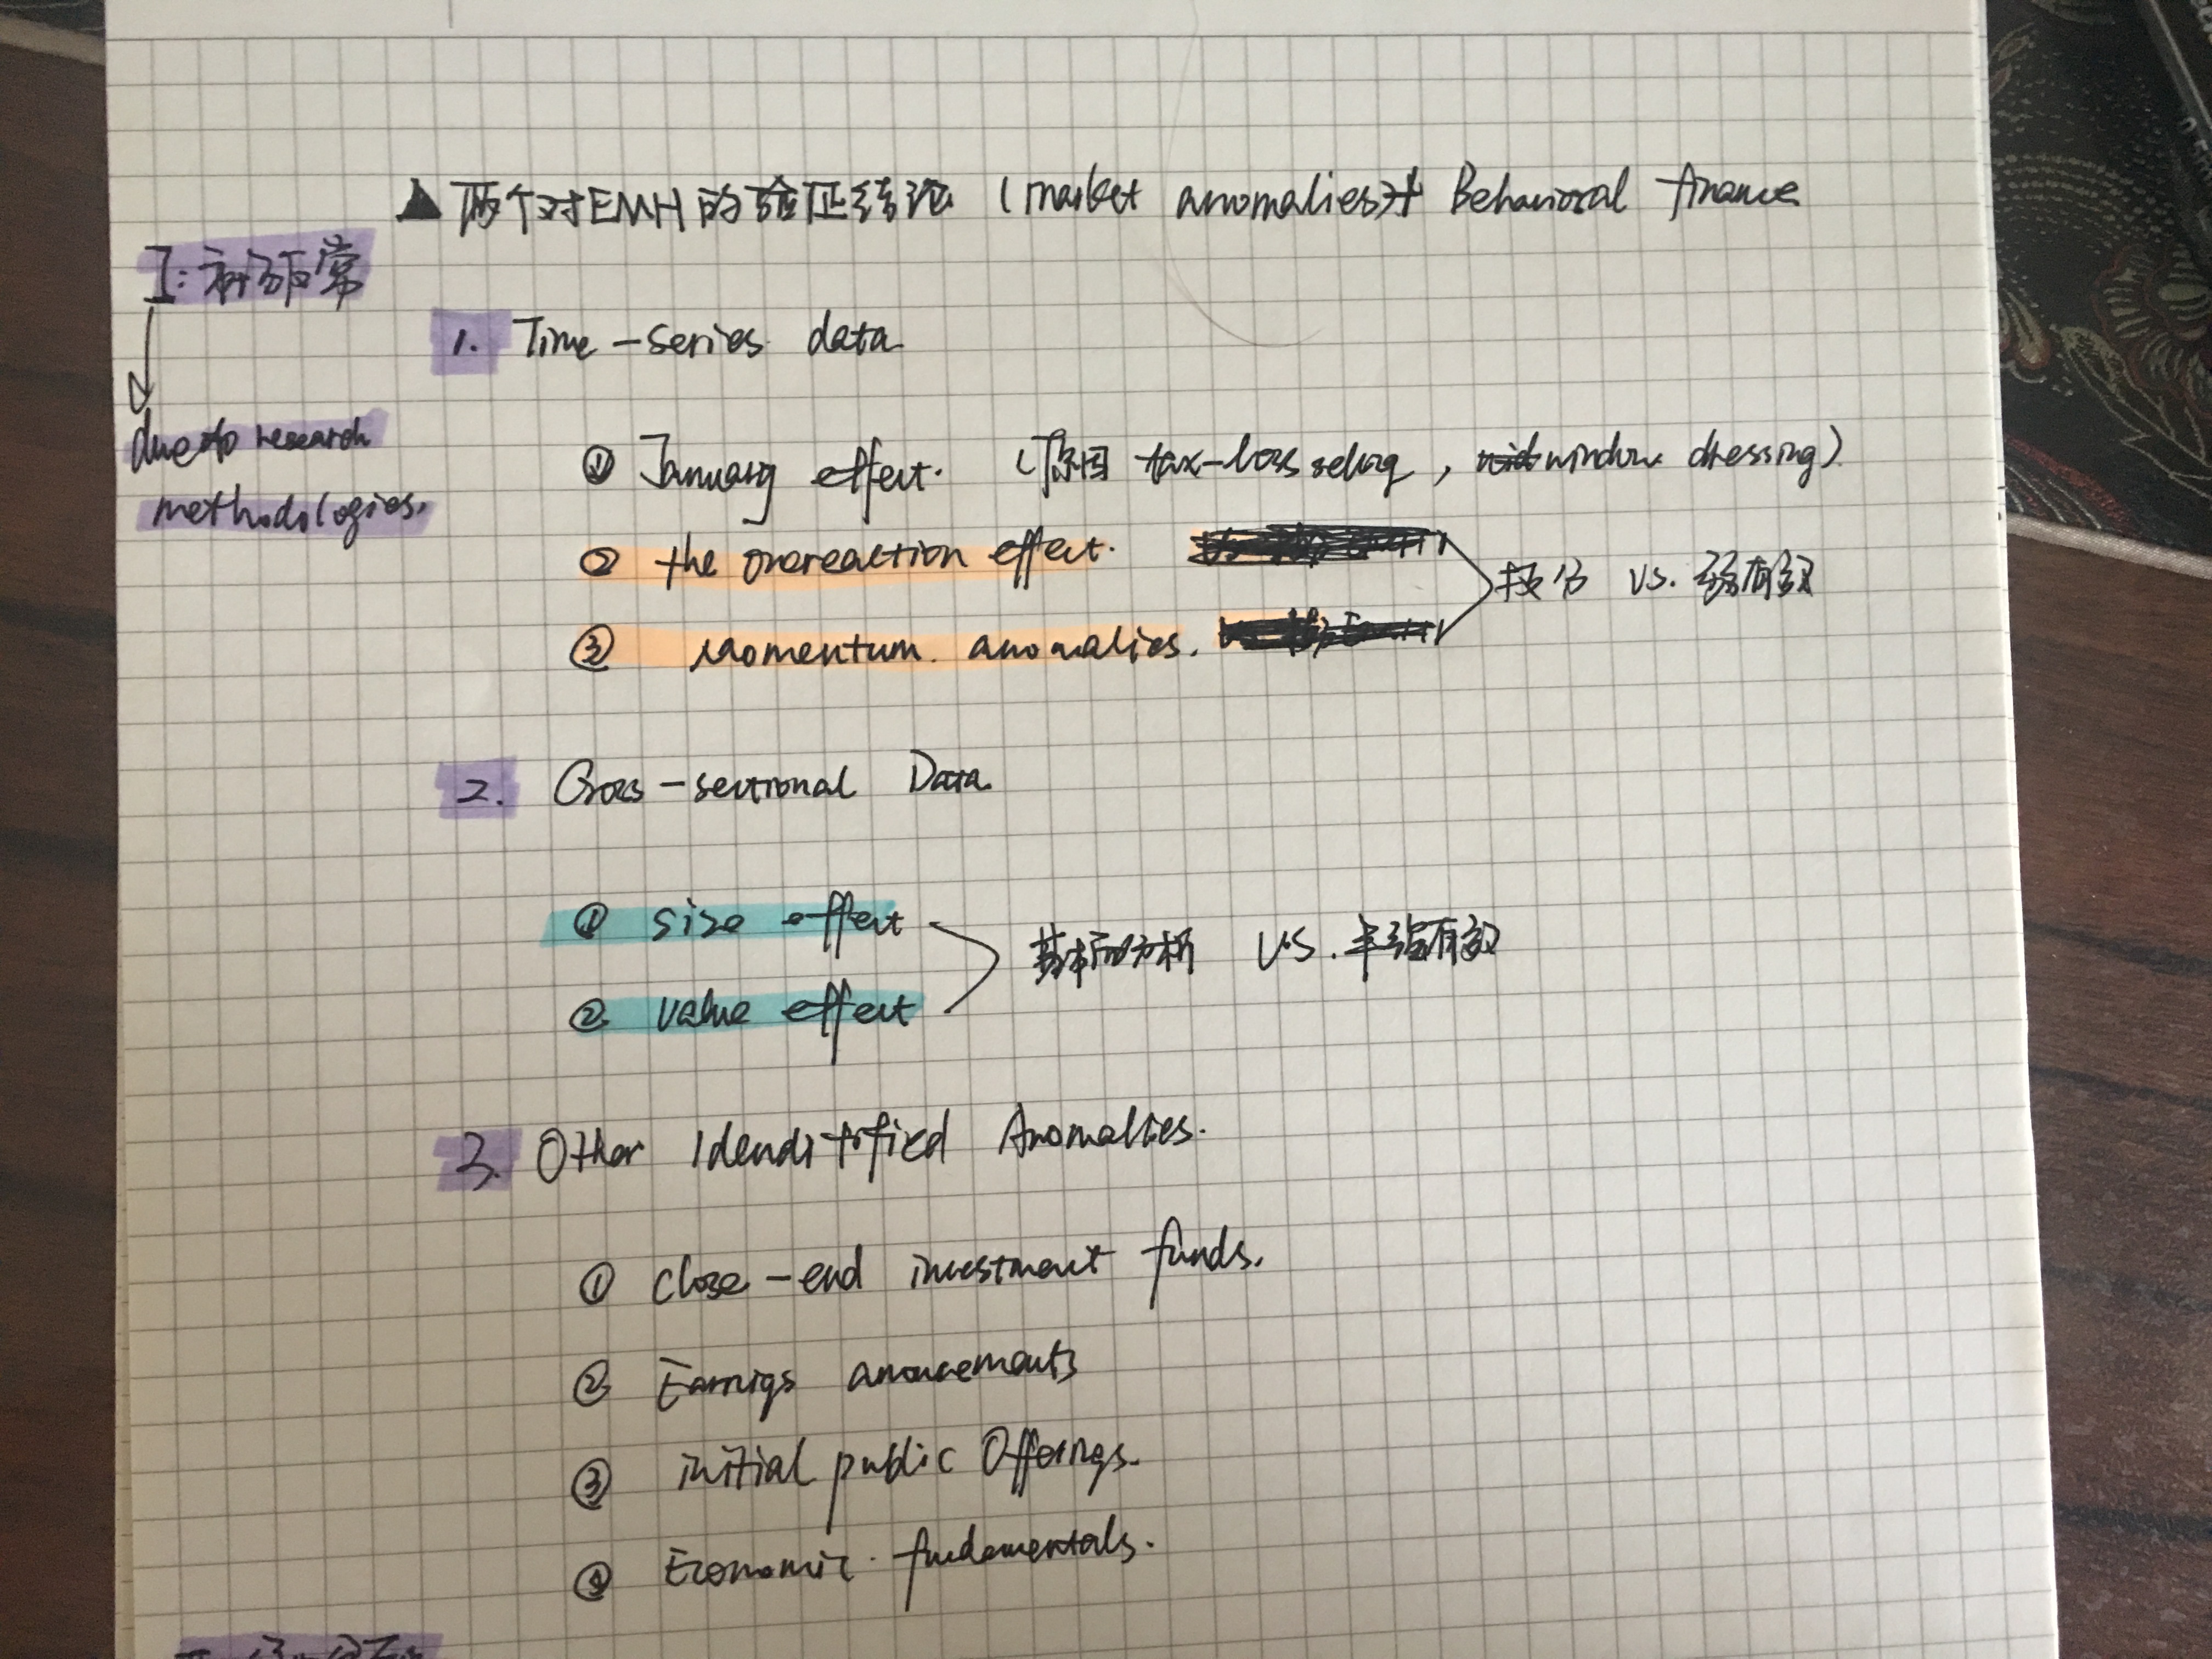 ▲ 两个对EMH的验证结论 (market anomalies对 Behavioral finance
I: 市场异常
1. Time-series data
due to research
methodologies.
① January effect. (原因 tax-loss selling, window dressing)
② the overreaction effect.
技分 VS. 弱有效
③ Momentum anomalies.
2. Cross-sectional Data
① size effect
基本面分析 VS. 半强有效
② value effect
3. Other Idenditified Anomalies.
① Close-end investment funds.
② Earnigs anouncements
③ initial public Offerings.
④ Economic fundamentals.